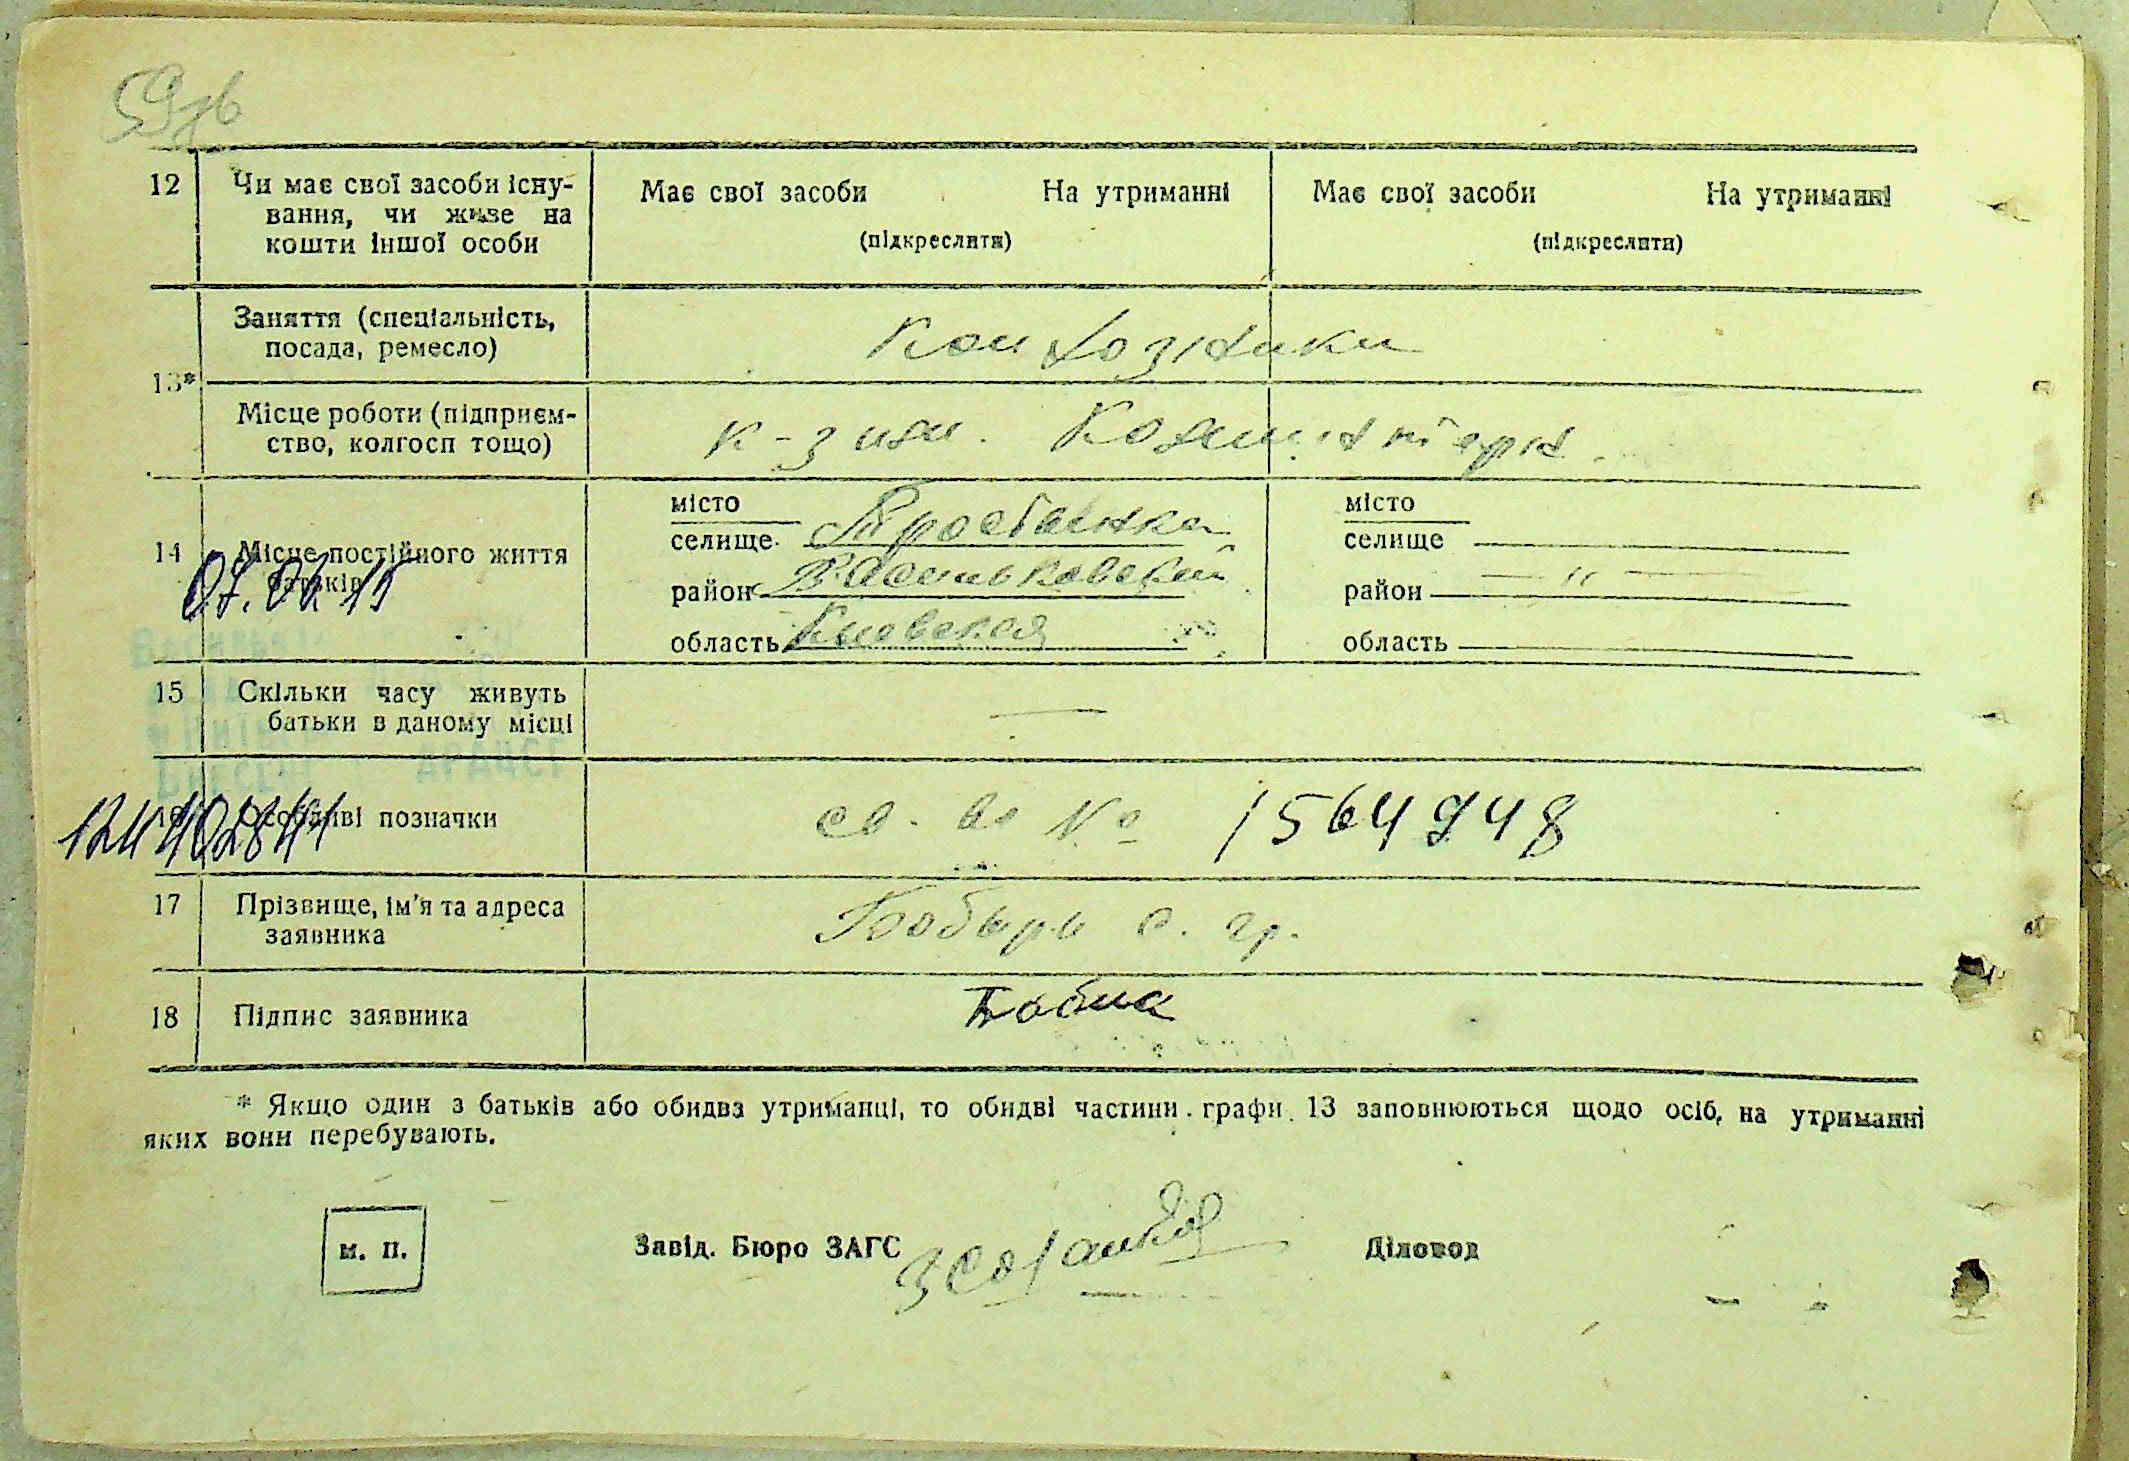 12
Чи має свої засоби існу-
вання, чи живе на
кошти іншої особи
Має свої засоби На утриманні
(підкреслити)
Має свої засоби На утриманні
(підкреслити)
13*
Заняття (спеціальність,
посада, ремесло)
Колхозники
Місце роботи (підприєм-
ство, колгосп тощо)
к-з им. Коминтерн
14
Місце постійного життя
батьків
місто
селище
район
область Киевская
місто
селище
район — " —
область
07.04.15
15
Скільки часу живуть
батьки в даному місці
—
16
Особливі позначки
св. во № 1564948
17
Прізвище, ім'я та адреса
заявника
Бобырь с. гр.
18
Підпис заявника
* Якщо один з батьків або обидва утриманці, то обидві частини графи 13 заповнюються щодо осіб, на утриманні
яких вони перебувають.
м. п.
Завід. Бюро ЗАГС
Діловод